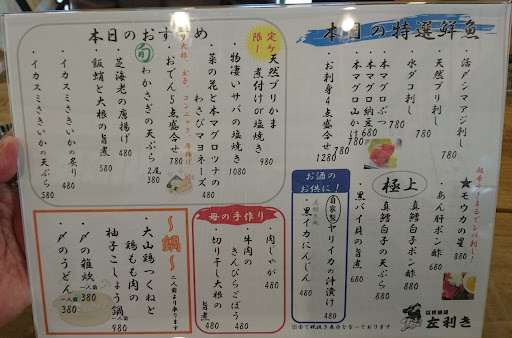 本日の特選鮮魚
活〆シマアジ刺し 780
天然ブリ刺し 780
水ダコ刺し 780
本マグロぶつ 780
本マグロ納豆 680
本マグロ山かけ 780
お刺身4点盛合せ 1280
極上
★モウカの星 880
あん肝ポン酢 680
真鱈白子ポン酢 880
真鱈白子の天ぷら 880
黒バイ貝の旨煮 680
お酒のお供に!
自家製
ヤリイカの沖漬け 480
黒イカにんじん 480
本日のおすすめ
定ケ限り!
天然ブリかま
煮付けor塩焼き 980
物凄いサバの塩焼き 680
菜の花と本マグロツナの
わさびマヨネーズ 480
大根、玉子、コンニャク、
おでん5点盛合せ 780
旬
わかさぎの天ぷら 2尾 380
芝海老の唐揚げ 480
飯蛸と大根の旨煮 580
イカスミさきいかの炙り 480
イカスミさきいかの天ぷら 480
母の手作り
肉じゃが 480
牛肉のきんぴらごぼう 480
切り干し大根の旨煮 480
~鍋~
二人前より承ります
大山鶏つくねと
鶏もも肉の
柚子こしょう鍋 一人前 980
〆の雑炊 一人前 380
〆のうどん 一人前 380
左利き
※全て税抜き表示となっております